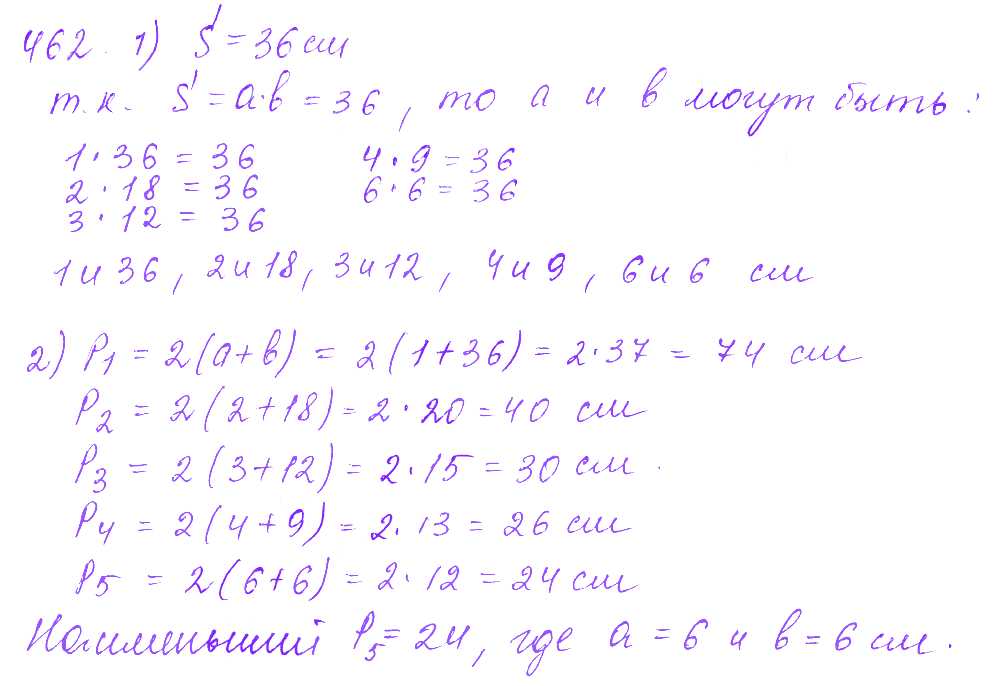 462. 1) S = 36 см
т.к. S = a·b = 36, то a и b могут быть:
1·36 = 36    4·9 = 36
2·18 = 36    6·6 = 36
3·12 = 36
1 и 36, 2 и 18, 3 и 12, 4 и 9, 6 и 6 см
2) P₁ = 2(a+b) = 2(1+36) = 2·37 = 74 см
P₂ = 2(2+18) = 2·20 = 40 см
P₃ = 2(3+12) = 2·15 = 30 см.
P₄ = 2(4+9) = 2·13 = 26 см
P₅ = 2(6+6) = 2·12 = 24 см
Наименьший P₅ = 24, где a = 6 и b = 6 см.